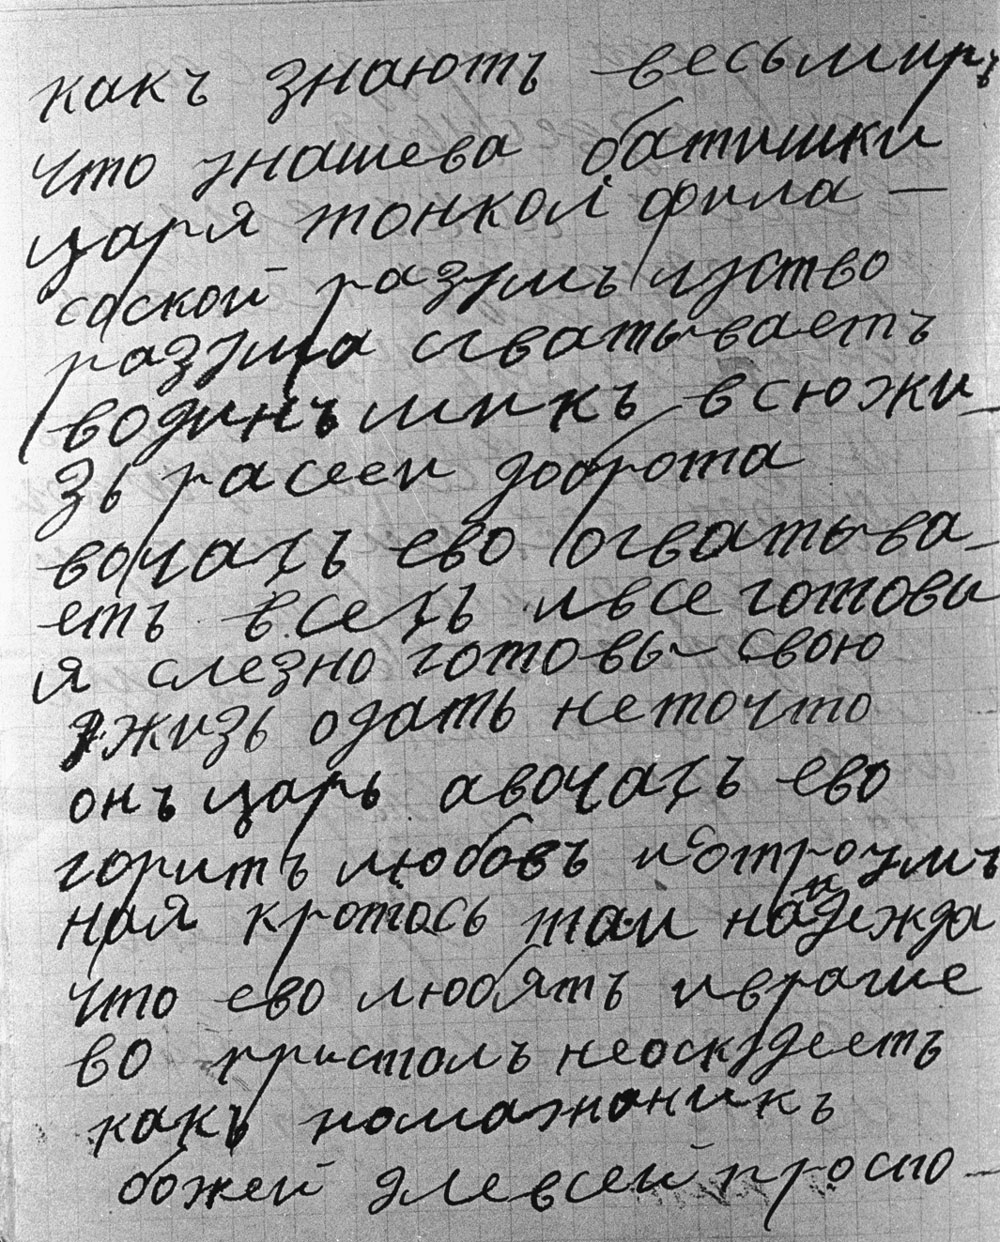 какъ знаютъ весь миръ
что унашева батишки
царя тонкой фила-
соской разумъ чуство
разума схватываетъ
водинъ микъ всю жи-
зь расеей доброта
вочахъ ево охватыва-
етъ всехъ ивсе готовы
я слезно готовы свою
жизь одать неточто
онъ царь авочахъ ево
горитъ любовъ и
ная кротось там надежда
что ево любятъ иврагие
во пристолъ неоскудеетъ
какъ помазнаникъ
божей длевсей просто-